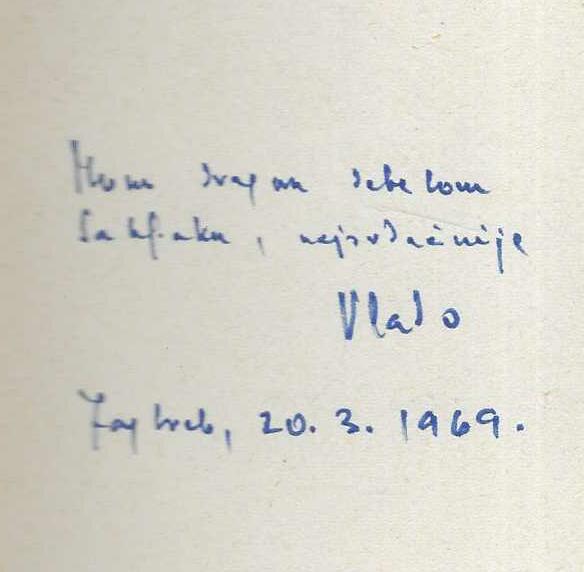 Mom dragom debelom
, najsrdačnije
Vlado
Zagreb, 20. 3. 1969.